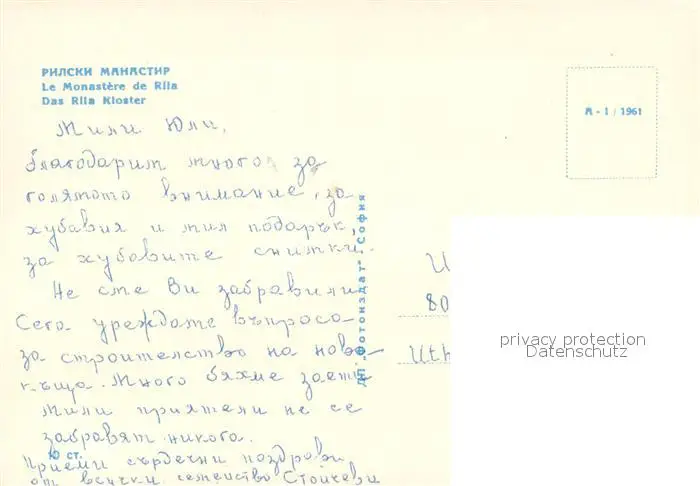 РИЛСКИ МАНАСТИР
Le Monastère de Rila
Das Rila Kloster
А - 1 / 1961
Мили Юли,
благодарим много за
голямото внимание, за
хубавия и мил подарък,
за хубавите снимки.
Не сме Ви забравили
Сега уреждаме въпроса
за строителство на нова
къща. Много бяхме заети
Мили приятели не се
забравят никога.
Приеми сърдечни поздрави
от всички семейство Стойчеви
Ю ст.
ДП "Фотоиздат", София
80
privacy protection
Datenschutz